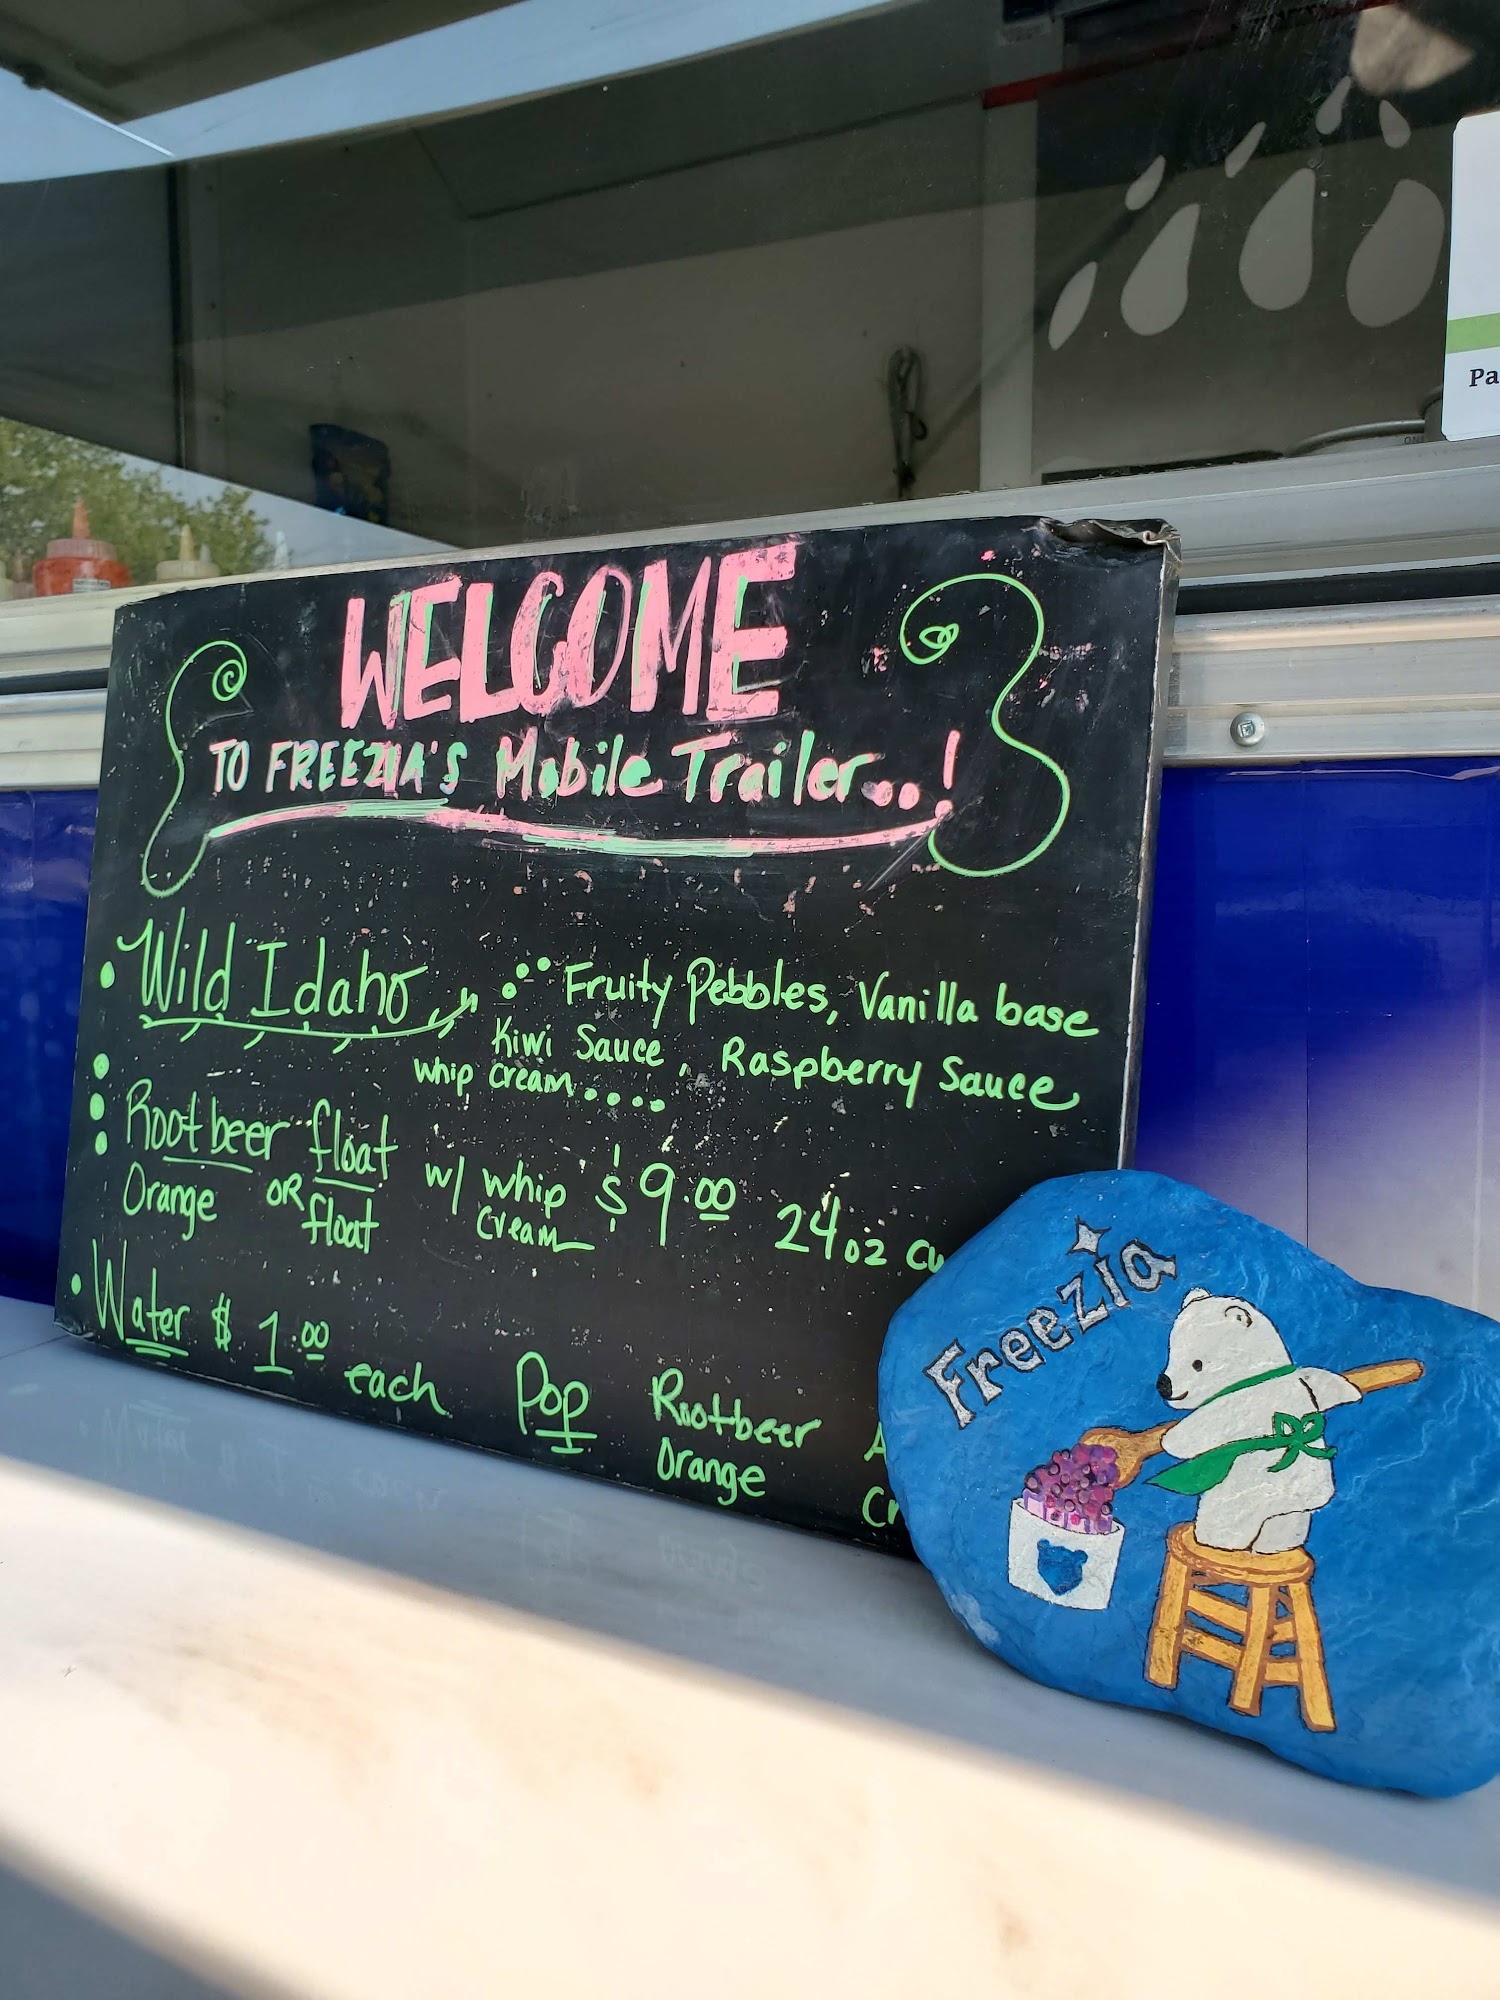 WELCOME
TO FREEZIA'S Mobile Trailer...!
• Wild Idaho
Fruity Pebbles, Vanilla base
Kiwi Sauce, Raspberry Sauce
whip cream....
Rootbeer float
OR
Orange float
w/ whip cream $9.00 24oz cu
• Water $1.00 each
Pop
Rootbeer
Orange
A
Cr
Freezia
Pa